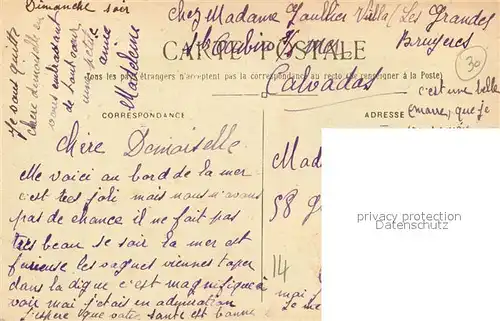 Dimanche soir
Chez Madame Gaultier Villa Les Grandes
Bruyeres
CARTE POSTALE
Tous les pays étrangers n'acceptent pas la correspondance au recto (se renseigner à la Poste)
Calvados
30
Je vous quitte
chère demoiselle en
vous embrassant
de tout cœur
une petite
amie
Madeleine
c'est une belle
marre, que je
CORRESPONDANCE
ADRESSE
Chère Demoiselle
Me voici au bord de la mer
c'est tres joli mais nous n'avons
pas de chance il ne fait pas
tres beau se soir la mer est
furieuse les vagues viennes taper
dans la digue c'est magnifique à
voir moi j'etais en admiration
j'espere que votre santé est bonne
Mad
58
14
privacy protection
Datenschutz